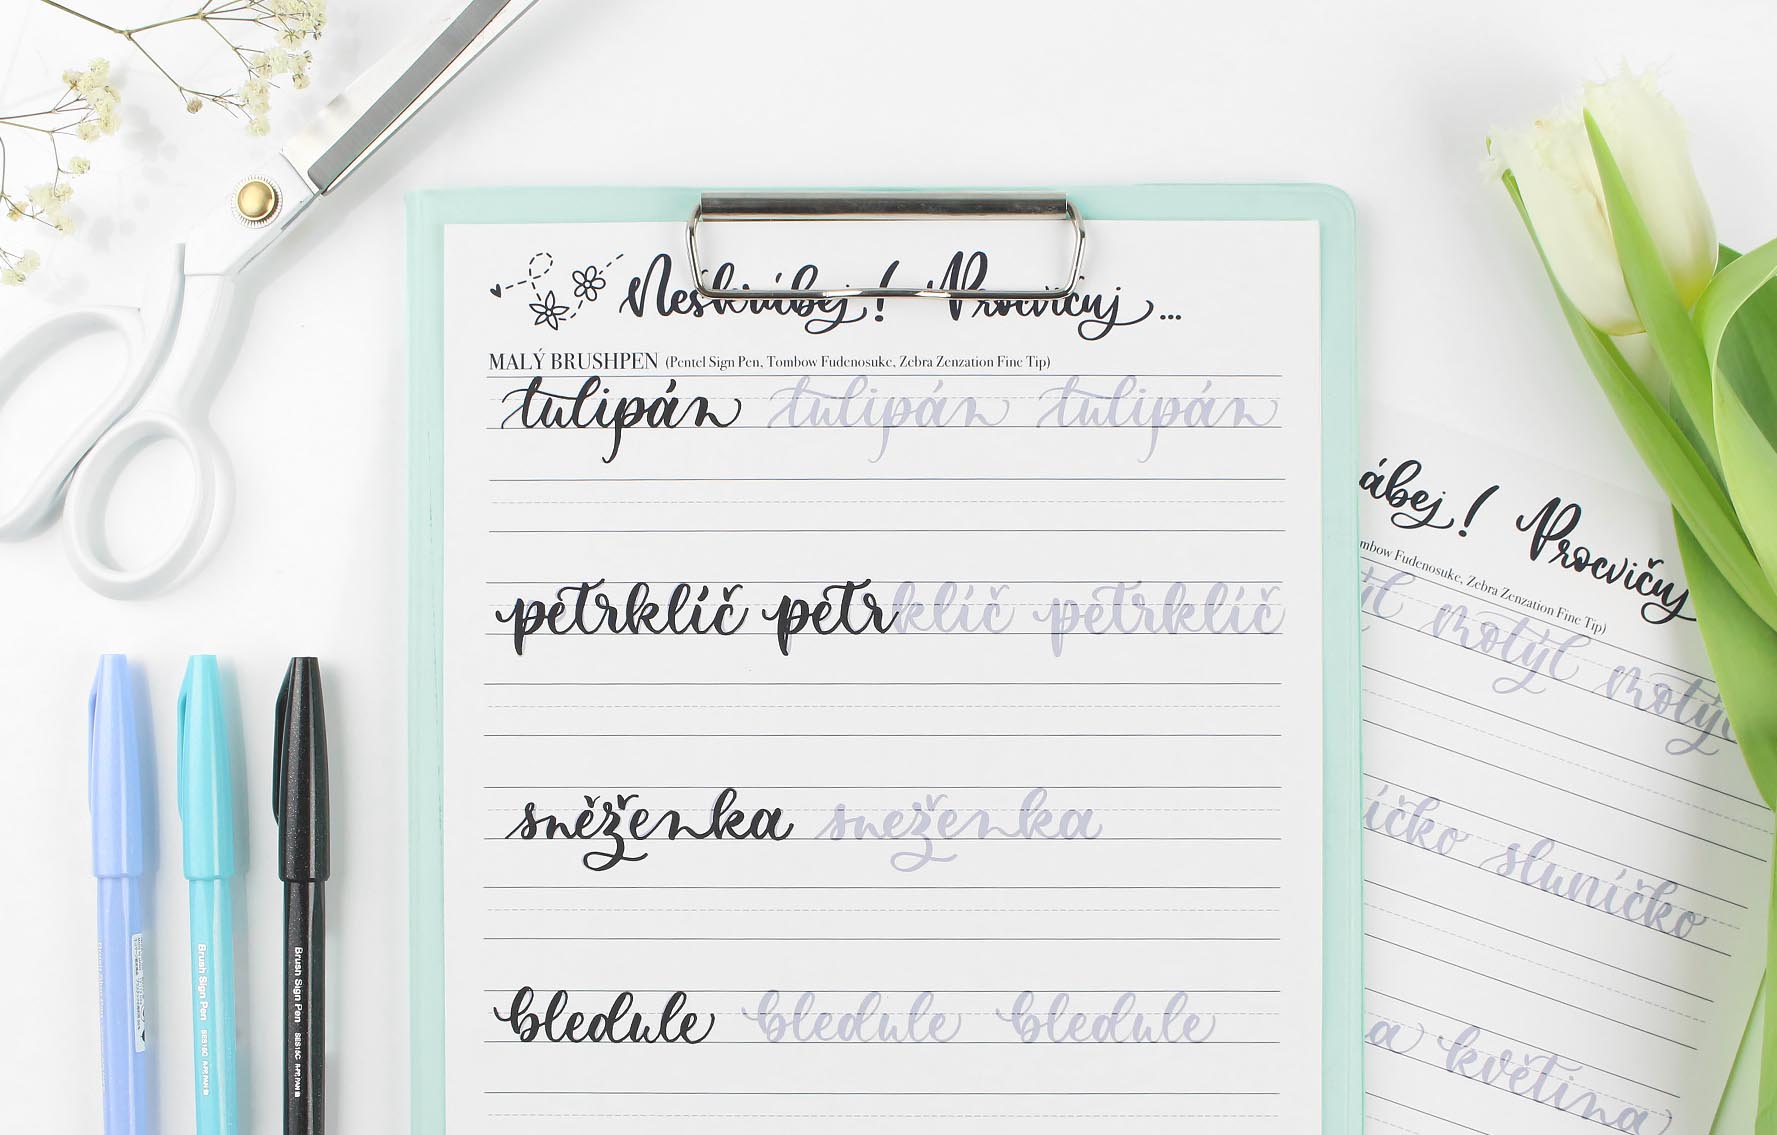 Neškrábej! Procvičuj...
MALÝ BRUSHPEN (Pentel Sign Pen, Tombow Fudenosuke, Zebra Zenzation Fine Tip)
tulipán tulipán tulipán
petrklíč petrklíč petrklíč
sněženka sneženka
bledule bledule bledule
ábej! Procvičuj
mbow Fudenosuke, Zebra Zenzation Fine Tip)
ýl motýl motýl
íčko sluníčko
a květina
Brush Sign Pen SES15C
Brush Sign Pen SES15C